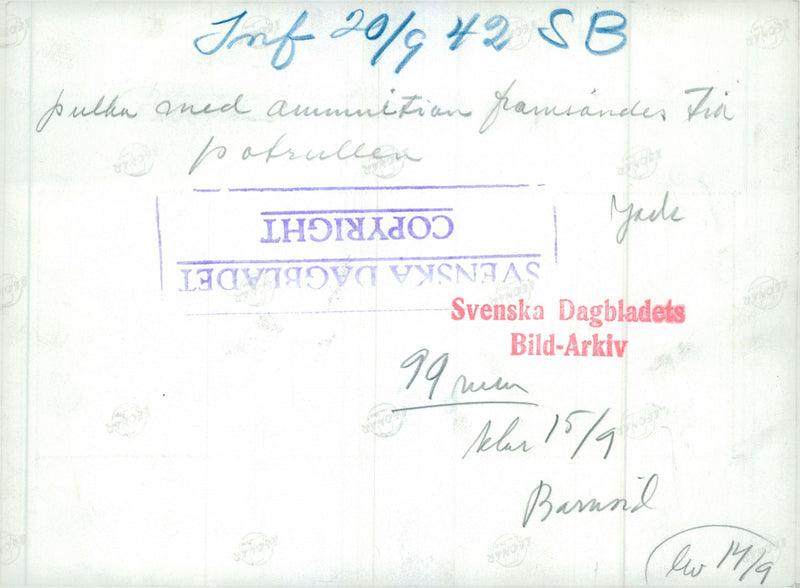 Inf 20/9 42 SB
pulka med ammunition framsändes till
patrullen
Jack
COPYRIGHT
SVENSKA DAGBLADET
Svenska Dagbladets
Bild-Arkiv
99 mm
klar 15/9
Barnsid
14/9
LEONAR